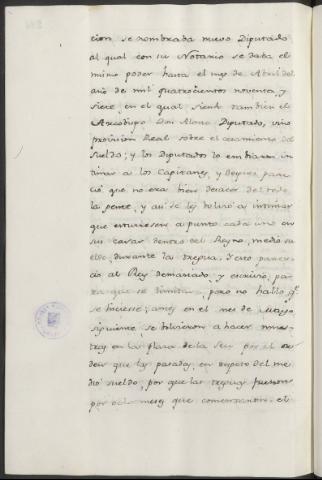 cion se nombrada nuevo Diputado
al qual con su Notario se daba el
mismo poder hasta el mes de Abril del
año de mil quatrocientos noventa y
siete, en el qual siendo tambien el
Arzobispo Don Alonso Diputado, vino
provision Real sobre el
sueldo; y los Diputados lo embiaron in
timar a los Capitanes, y despues pare
ció que no era bien del todo
la gente, y asi se les bolvió a intimar
que estuviesen a punto cada uno en
sus casas dentro del Reyno, medio su
eldo, durante la tregua. Y esto pare
cio al Rey demasiado, y escrivió, pa
ra que se pero no halló q.e
se hiciese; antes en el mes de Mayo
siguiente se bolvieron a hacer mues
tras en la plaza de la Seu por el or
den que las pasadas, en respeto del me
dio sueldo, por que las treguas fueron
por del mes que comenzaron. el